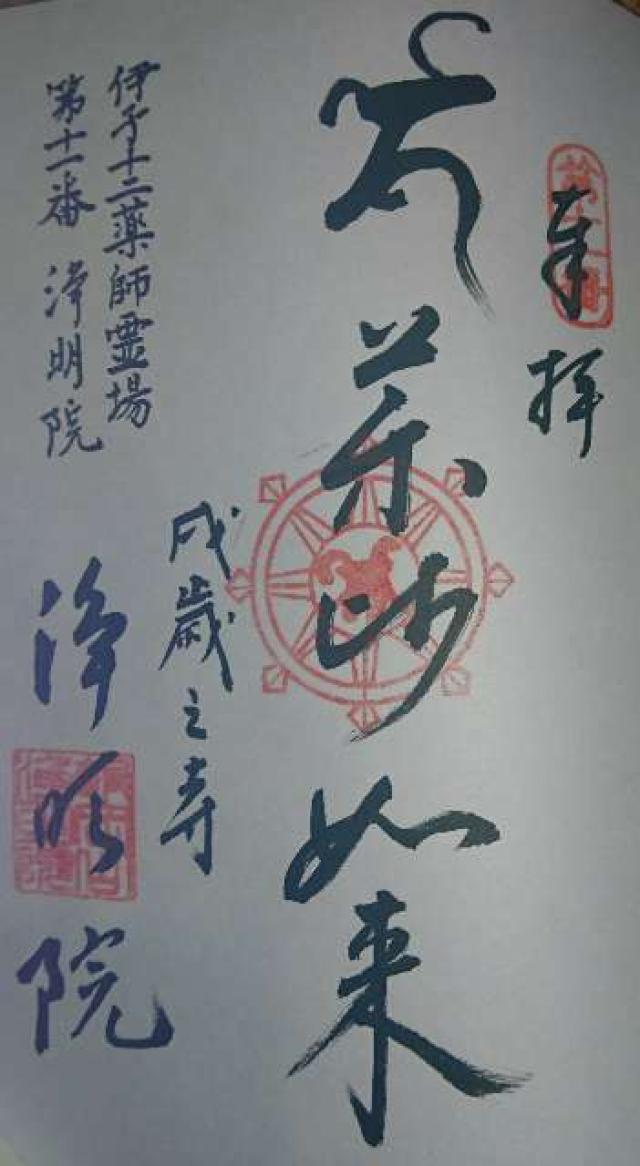 奉拝
薬師如来
戌歳之寺
伊予十二薬師霊場
第十一番 浄明院
浄明院